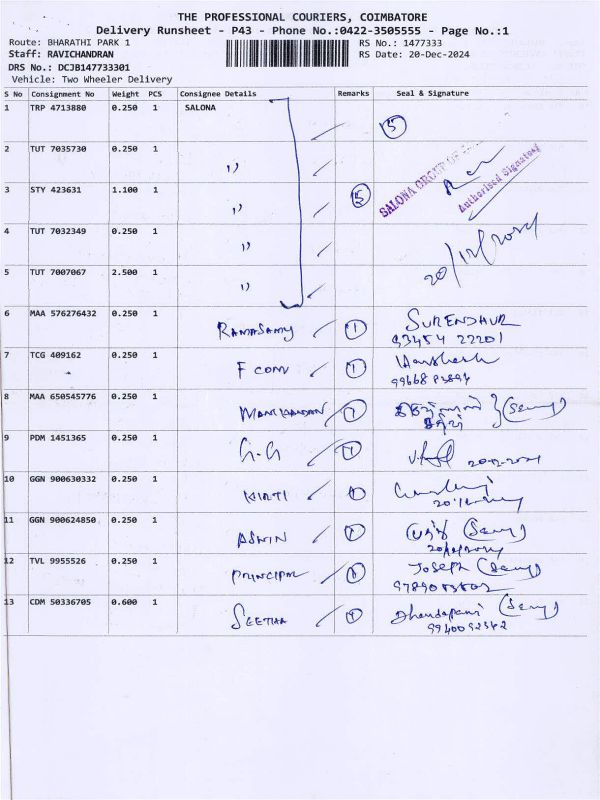 THE PROFESSIONAL COURIERS, COIMBATORE
Delivery Runsheet - P43 - Phone No.:0422-3505555 - Page No.:1
Route: BHARATHI PARK 1 RS No.: 1477333
Staff: RAVICHANDRAN RS Date: 20-Dec-2024
DRS No.: DCJB147733301
Vehicle: Two Wheeler Delivery
S No Consignment No Weight PCS Consignee Details Remarks Seal & Signature
1 TRP 4713880 0.250 1 SALONA 5
2 TUT 7035730 0.250 1 ,,
3 STY 423631 1.100 1 ,, 5 SALONA GROUP OF Authorised Signatory
4 TUT 7032349 0.250 1 ,, 20/12/2024
5 TUT 7007067 2.500 1 ,,
6 MAA 576276432 0.250 1 RAMASAMY 1 SURENDHUR
93454 22201
7 TCG 409162 0.250 1 F COM 1
8 MAA 650545776 0.250 1 MANIKANDAN 1
9 PDM 1451365 0.250 1 G.G 1
10 GGN 900630332 0.250 1 KIRTI 1
11 GGN 900624850 0.250 1 ASWIN 1
20/12/2024
12 TVL 9955526 0.250 1 PRINCIPAL 1 Joseph
13 CDM 50336705 0.600 1 SEETHA 1 Dhandapani